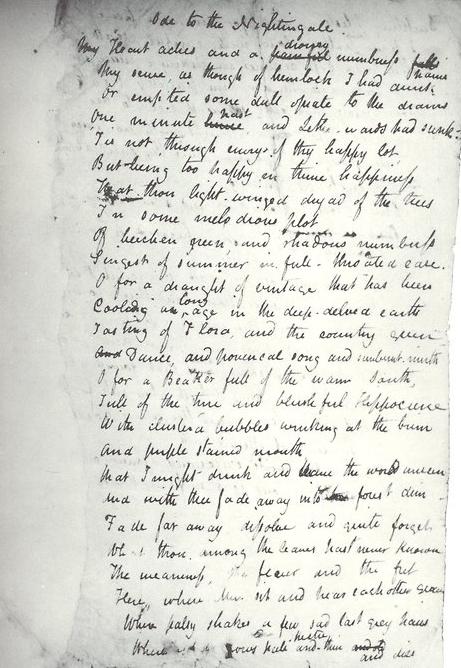 Ode to the Nightingale
My Heart aches and a drowsy painful numbness falls pains
My sense, as though of hemlock I had drunk
Or emptied some dull opiate to the drains
One minute hence past and Lethe-wards had sunk.
'Tis not through envy of thy happy lot
But being too happy in thine happiness
That thou light-winged dryad of the trees
In some melodious plot
Of beechen green and shadows numberless
Singest of summer in full-throated ease.
O for a draught of vintage that has been
Cooling an long age in the deep-delved earth
Tasting of Flora, and the country green
And Dance, and provencal song and sunburnt mirth
O for a Beaker full of the warm South,
Full of the true and blushful Hippocrene
With cluster'd bubbles winking at the brim
And purple stained mouth
that I might drink and leave the world unseen
and with thee fade away into forest dim
Fade far away dissolve and quite forget
What thou among the leaves hast never known
The weariness, the fever and the fret
Here, where Men sit and hear each other groan
Where palsy shakes a few sad last grey hairs
Where grows pale and thin and dies